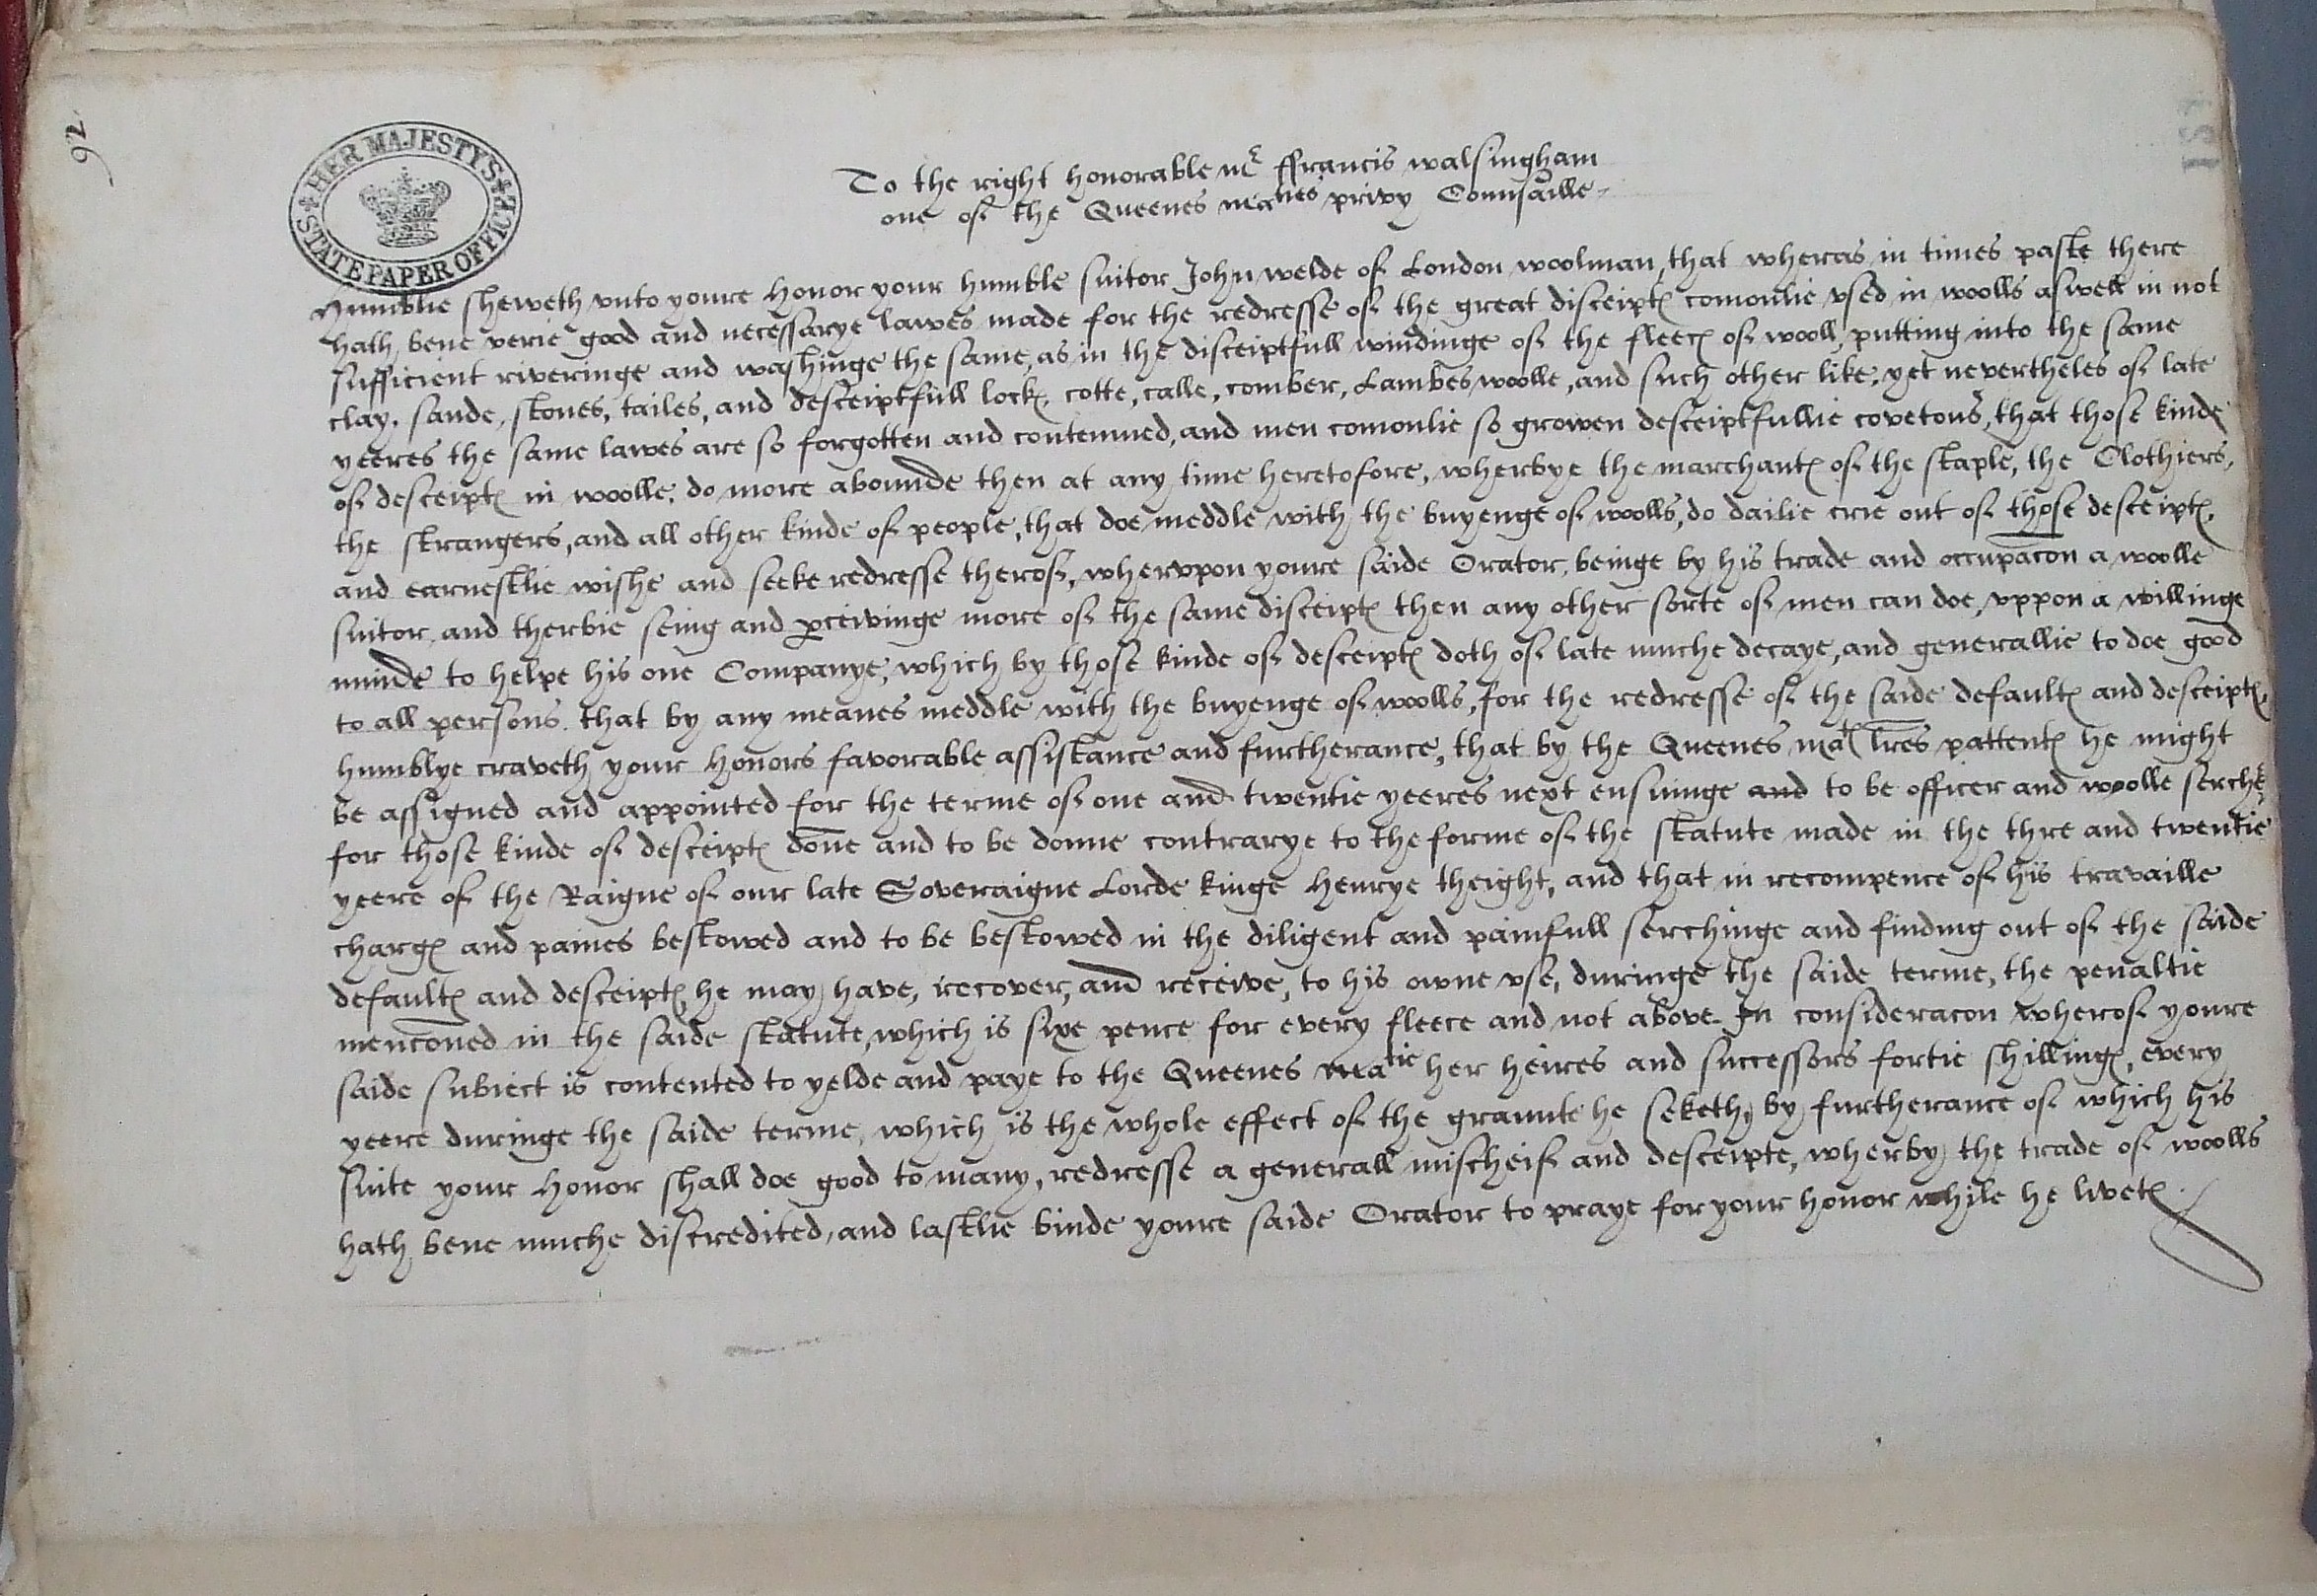 92
HER MAJESTYS STATE PAPER OFFICE
To the right honorable mr ffrancis walsingham
one of the Queenes maties privy Counsaille
Humblie sheweth vnto youre Honor your humble sutor John welde of London woolman, that wheras in times paste there
hath bene verie good and necessarye lawes made for the redresse of the great disceiptes comonlie vsed in woolls aswell in not
sufficient riveringe and washinge the same, as in the disceiptfull windinge of the fleeces of wooll, putting into the same
clay, sande, stones, tailes, and desceiptfull lockes, cotte, calle, comber, Lambes woolle, and such other like, yet nevertheles of late
yeeres the same lawes are so forgotten and contemned, and men comonlie so growen desceiptfullie covetous, that those kindes
of desceiptes in woolle, do more abounde then at any time heretofore, wherbye the marchantes of the staple, the Clothiers,
the strangers, and all other kinde of people, that doe meddle with the buyenge of woolls, do dailie crie out of those desceiptes,
and earnestlie wishe and seeke redresse therof, whervpon youre saide Orator, beinge by his trade and occupacon a woolle
sutor, and therbie seing and perceivinge more of the same disceiptes then any other sorte of men can doe, vppon a willinge
minde to helpe his one Companye, which by those kinde of desceiptes doth of late muche decaye, and generallie to doe good
to all persons that by any meanes meddle with the buyenge of woolls, for the redresse of the saide defaultes and desceiptes,
humblye craveth your Honors favorable assistance and furtherance, that by the Queenes mates lres pattentes he might
be assigned and appointed for the terme of one and twentie yeeres next ensuinge and to be officer and woolle sercher
for those kinde of desceiptes donne and to be donne contrarye to the forme of the statute made in the thre and twentie
yeere of the Raigne of our late Soveraigne Lorde kinge Henrye theight, and that in recompence of his travaille
charges and paines bestowed and to be bestowed in the diligent and painfull serchinge and finding out of the saide
defaultes and desceiptes he may have, recover, and receive, to his owne vse, duringe the saide terme, the penaltie
menconed in the saide statute, which is sixe pence for every fleece and not above. In consideracon wherof youre
saide subiect is contented to yelde and paye to the Queenes matie her heires and successors fortie shillinges, every
yeere duringe the saide terme, which is the whole effect of the graunte he seketh, by furtherance of which his
suite your Honor shall doe good to many, redresse a generall mischeif and desceipte, wherby the trade of woolls
hath bene muche discredited, and lastlie binde youre saide Orator to praye for your honor while he liveth